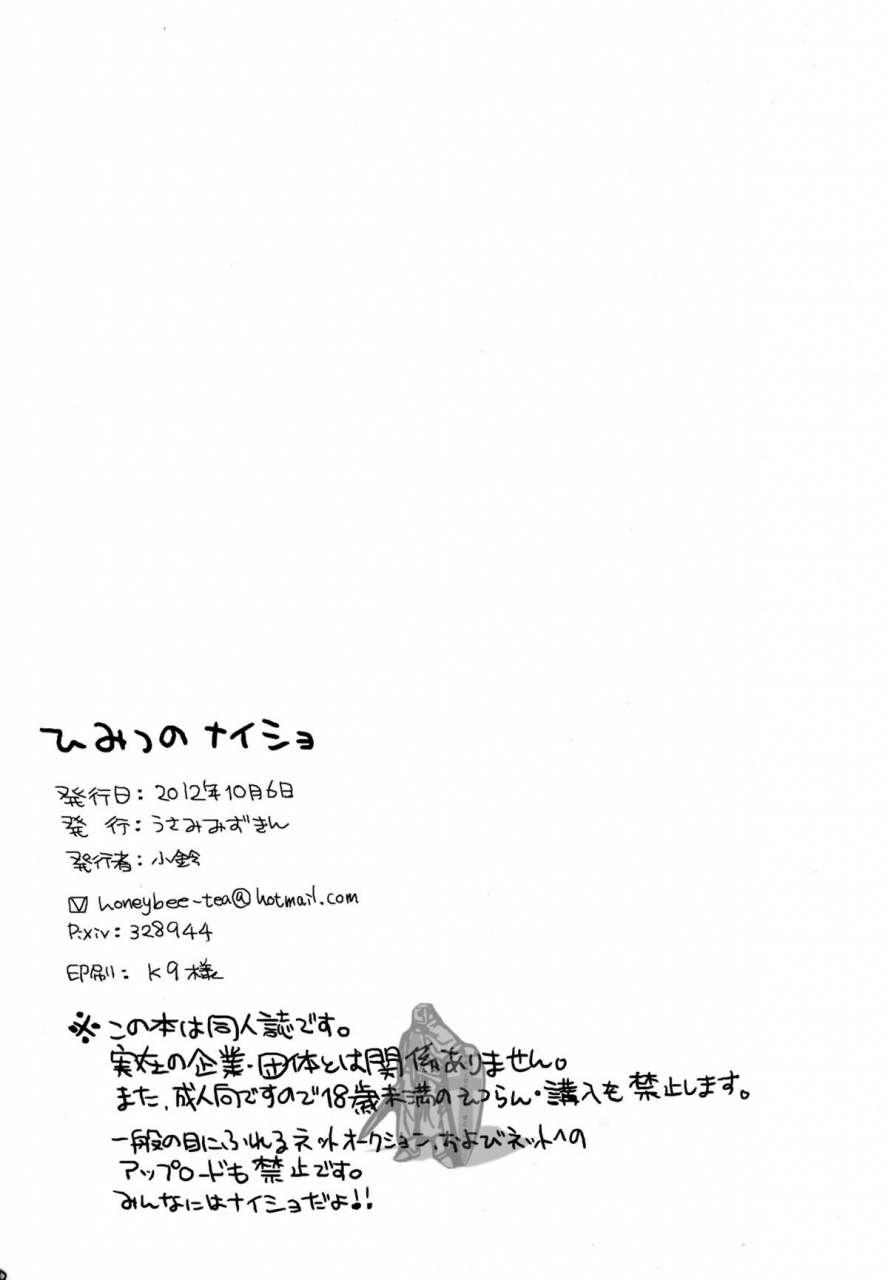 ひみつのナイショ
発行日：2012年10月6日
発　行：うさみみずきん
発行者：小鈴
honeybee-tea@hotmail.com
Pixiv：328944
印刷：K9様
※この本は同人誌です。
実在の企業・団体とは関係ありません。
また、成人向ですので18歳未満のえつらん・講入も禁止します。
一般の目にふれるネットオークション、およびネットへの
アップロードも禁止です。
みんなにはナイショだよ!!